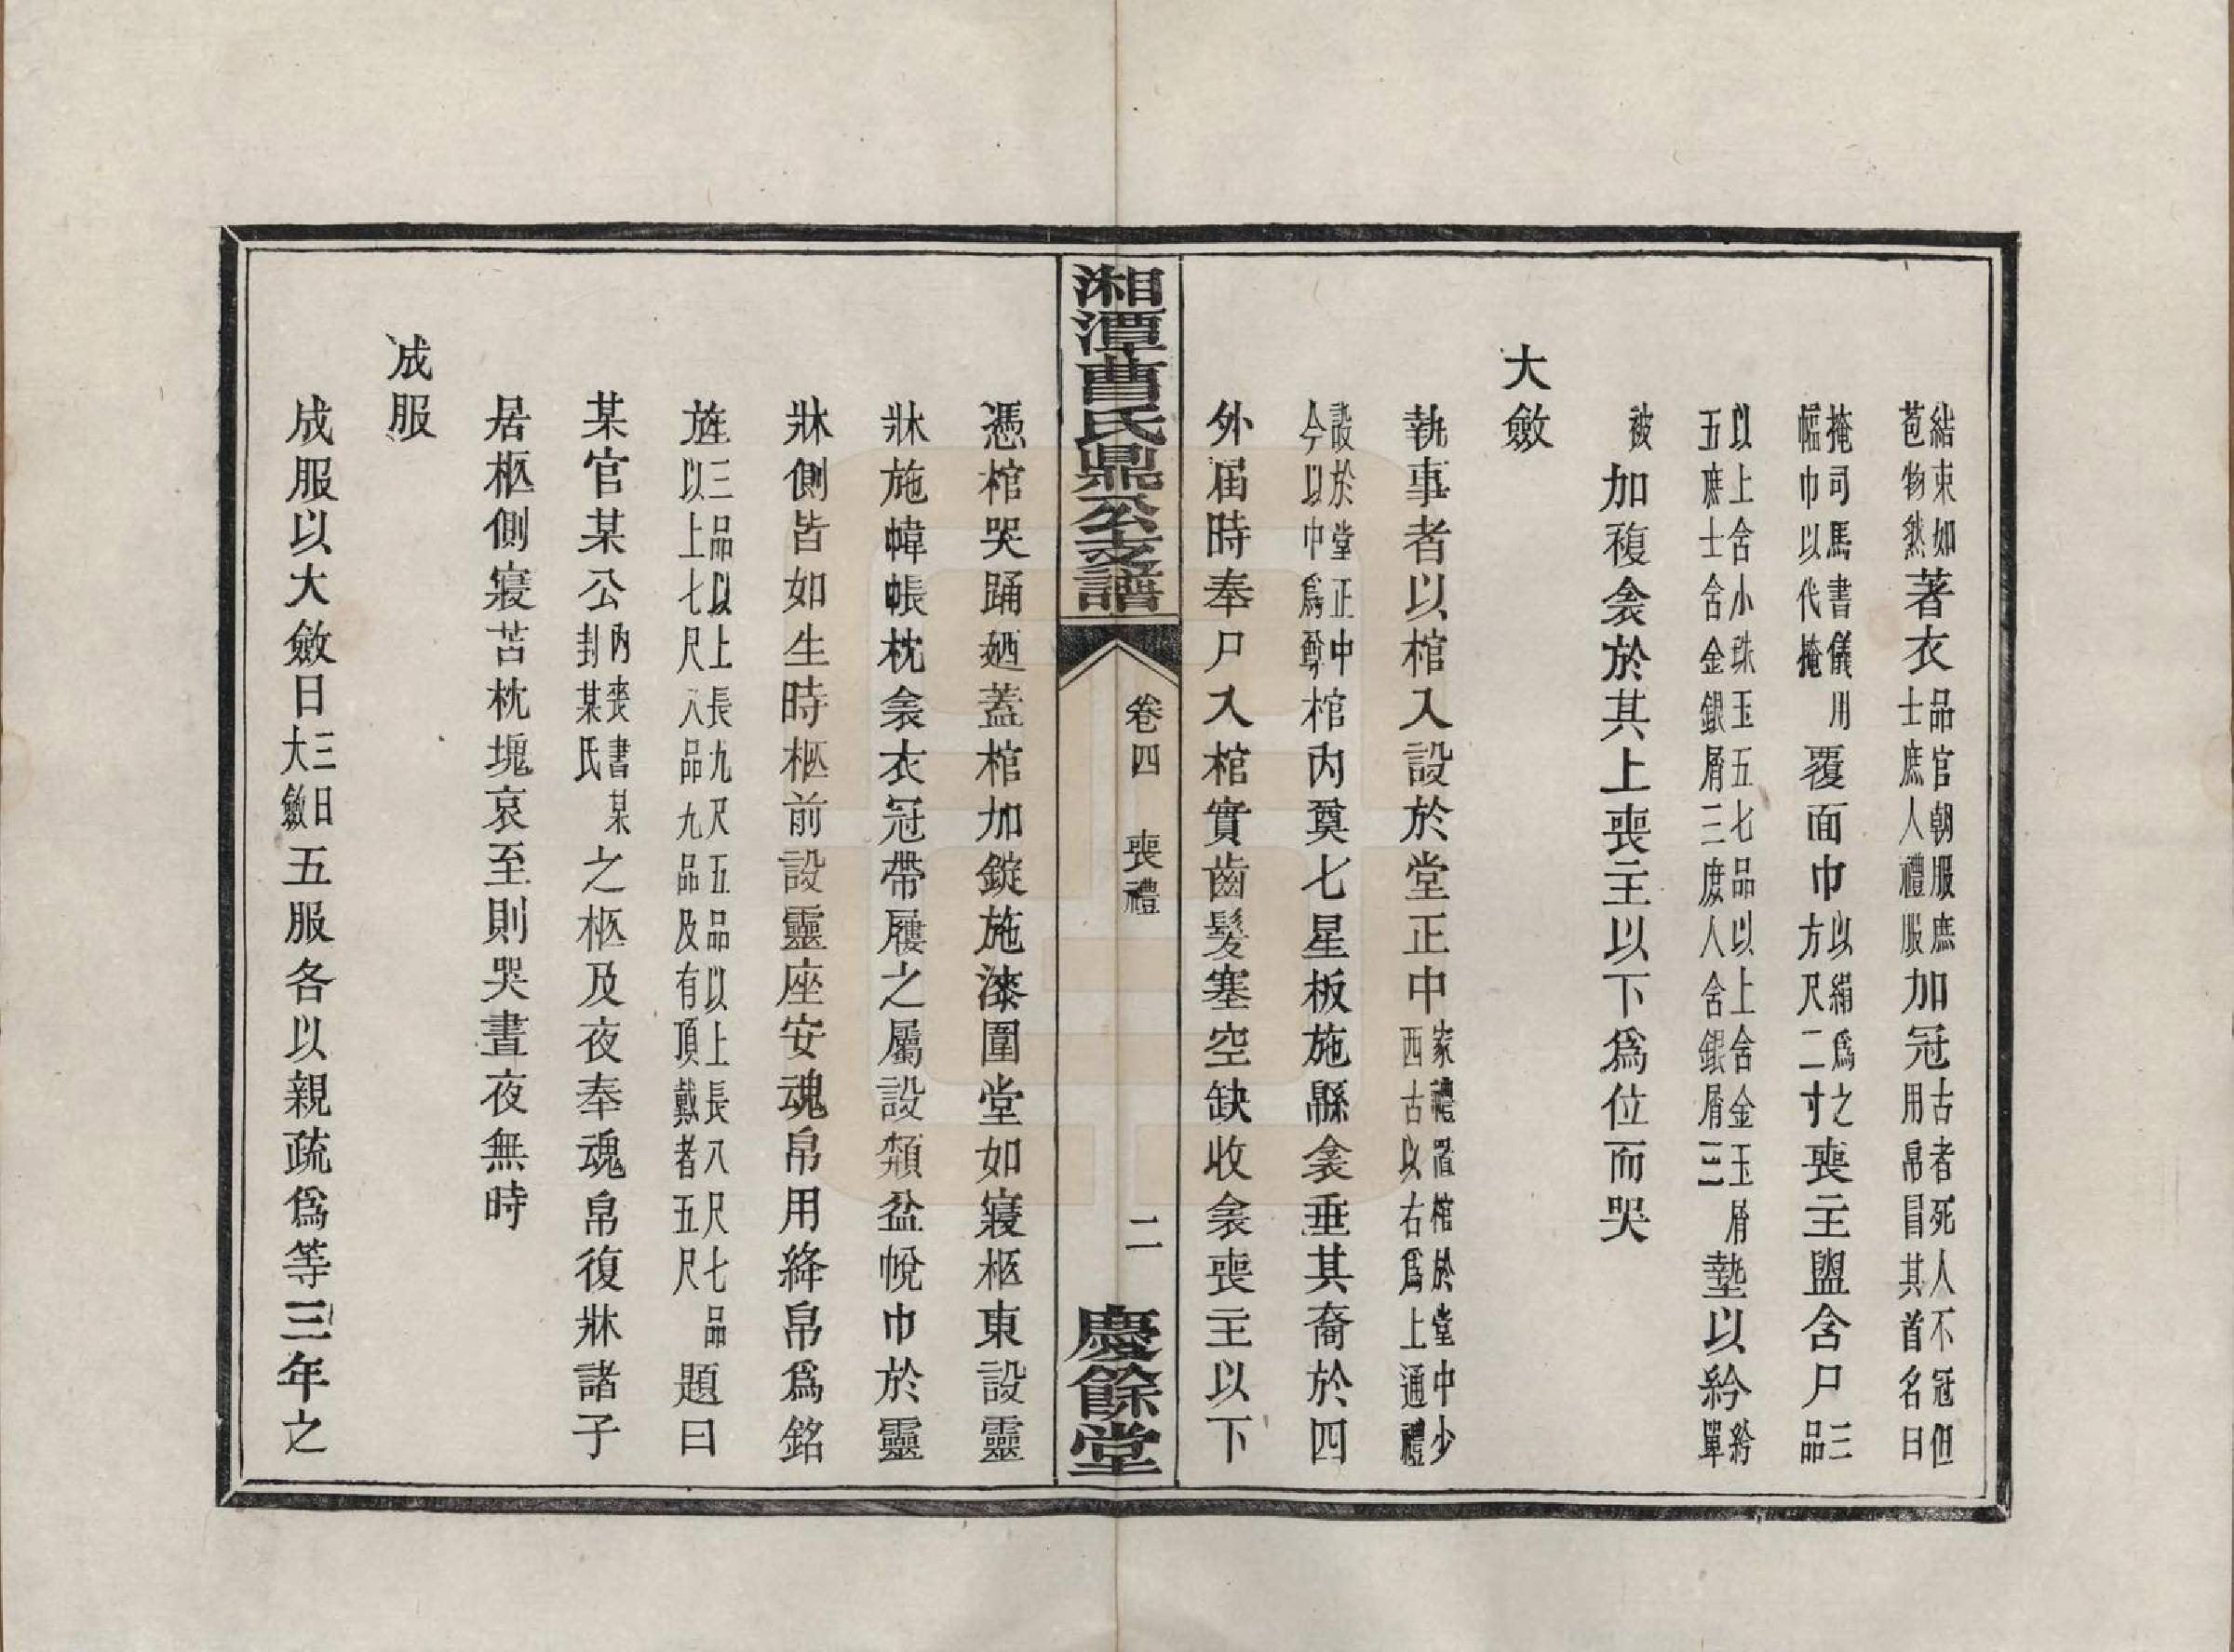 結束如苞物然著衣品官朝服庶士庶人禮服加冠古者死人不冠但用帛冒其首名曰
掩司馬書儀用幅巾以代掩覆面巾以絹爲之方尺二寸喪主盥含尸三品
以上含小珠玉五七品以上含金玉屑五庶士含金銀屑三庶人含銀屑三墊以紟紟單
被加複衾於其上喪主以下爲位而哭
大斂
執事者以棺入設於堂正中家禮置棺於堂中少西古以右爲上通禮
設於堂正中今以中爲尊棺內奠七星板施緜衾垂其裔於四
外屆時奉尸入棺實齒髮塞空缺收衾喪主以下
湘潭曹氏鼎公支譜
卷四 喪禮
二
慶餘堂
憑棺哭踊廼蓋棺加錠施漆圍堂如寢柩東設靈
牀施幃帳枕衾衣冠帶屨之屬設頮盆帨巾於靈
牀側皆如生時柩前設靈座安魂帛用絳帛爲銘
旌三品以上長九尺五品以上長八尺七品以上七尺八品九品及有頂戴者五尺題曰
某官某公內喪書某封某氏之柩及夜奉魂帛復牀諸子
居柩側寢苫枕塊哀至則哭晝夜無時
成服
成服以大斂日三日大斂五服各以親疏爲等三年之